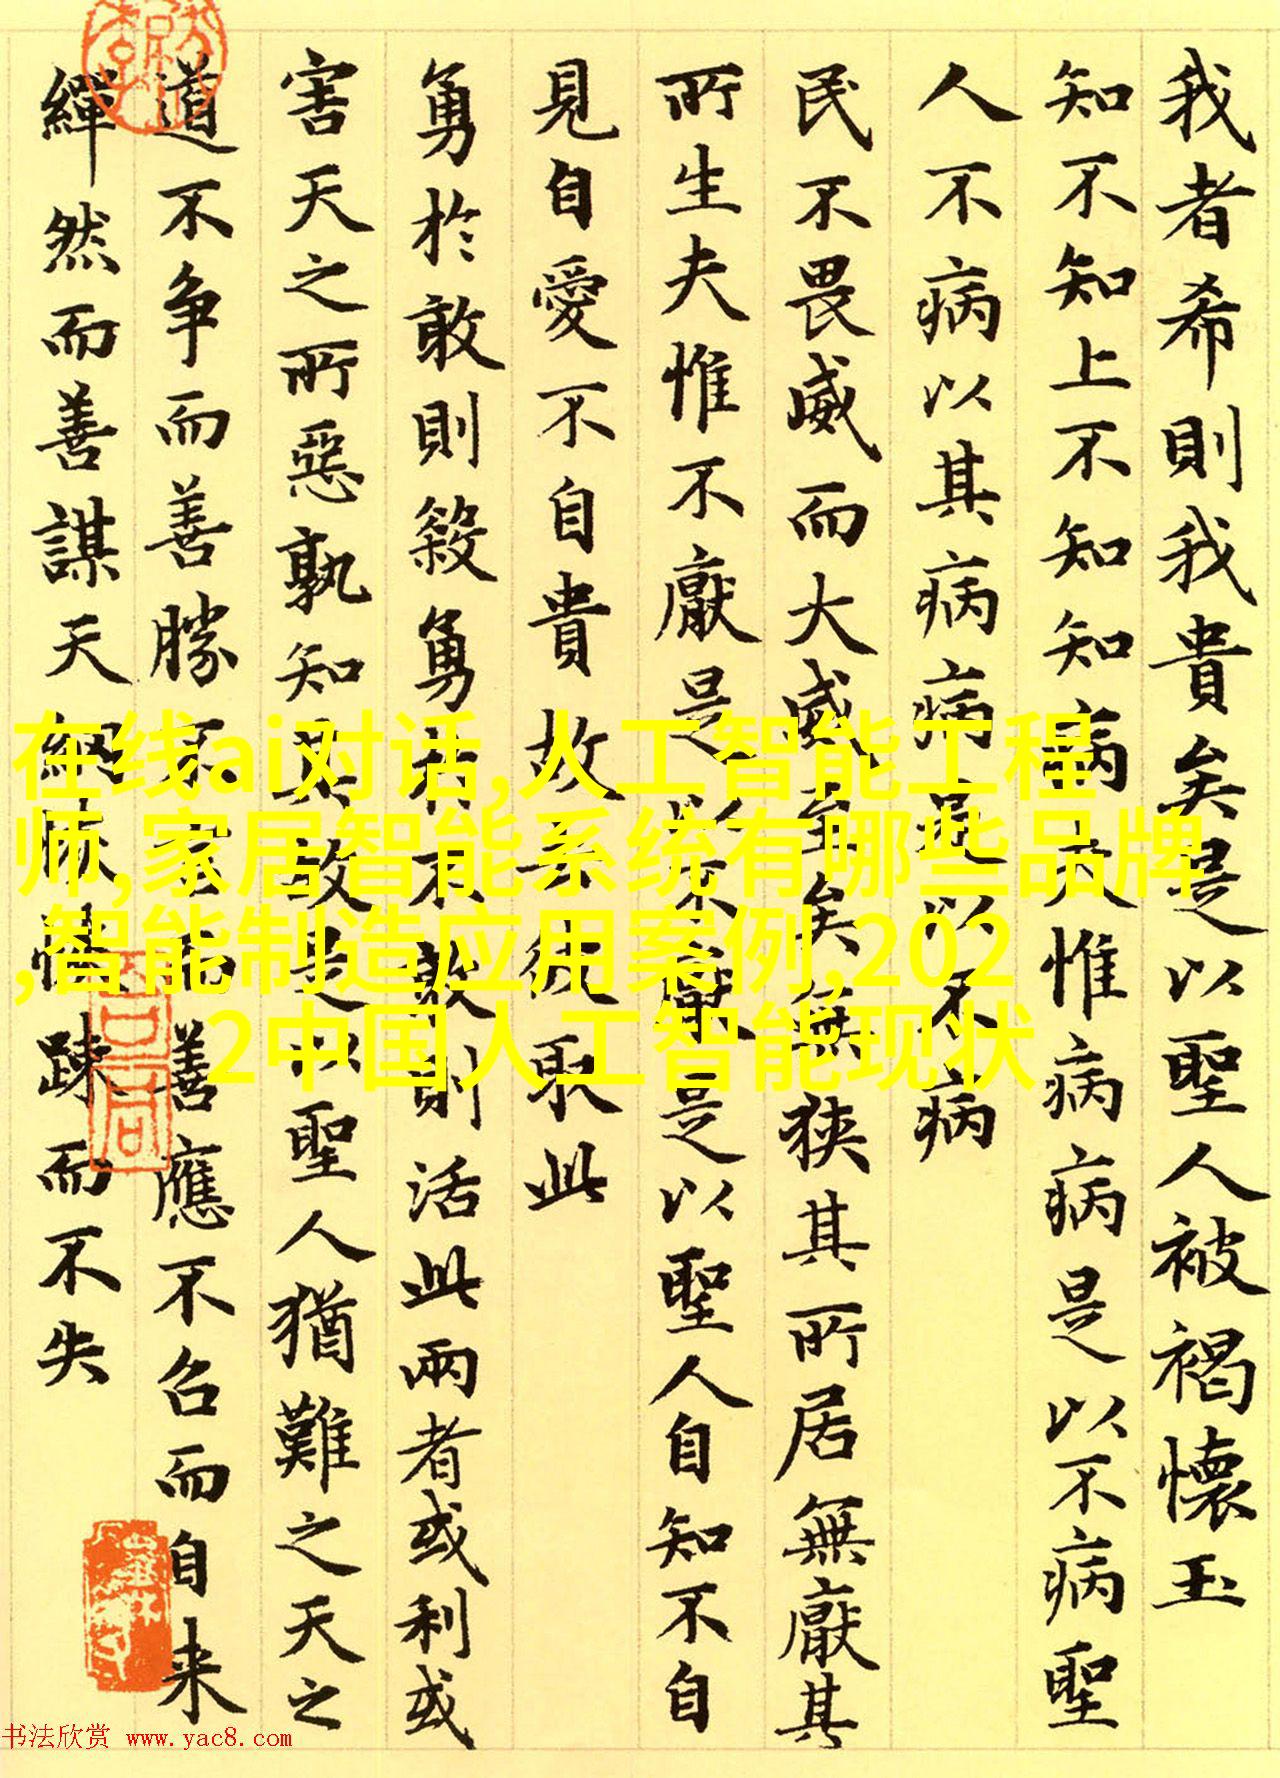 我者希則我貴矣是以聖人被褐懷玉
知不知上不知知病夫惟病病是以不病聖
人不病以其病病是以不病
民不畏威而大威至矣無狹其所居無厭其
所生夫惟不厭是以不厭是以聖人自知不自
見自愛不自貴故去彼取此
勇於敢則殺勇於不敢則活此兩者或利或
害天之所惡孰知其故是以聖人猶難之天之
道不争而善勝不言而善應不召而自来
繟然而善謀天網恢恢踈而不失
在线ai对话,人工智能工程
师,家居智能系统有哪些品牌
,智能制造应用案例,202
2中国人工智能现状
书法欣赏 www.yac8.com